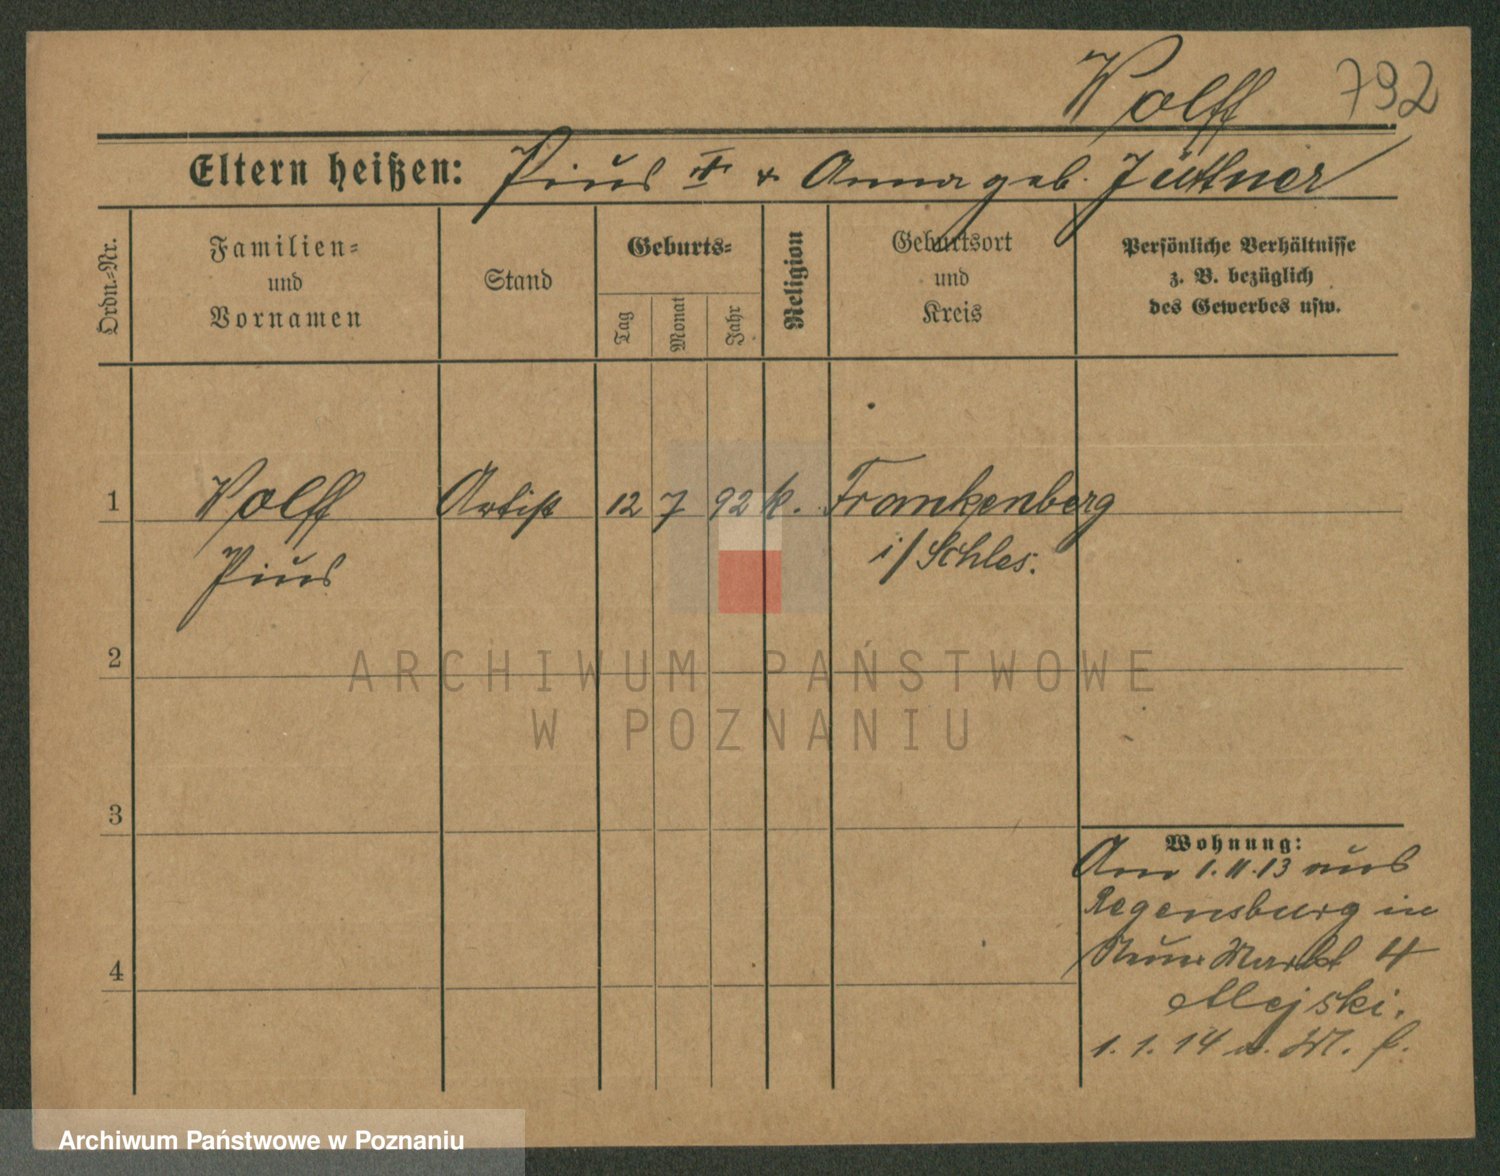 Wolff 792
Eltern heißen: Pius † + Anna geb. Jüttner
Ordn.-Nr.
Familien-
und
Vornamen
Stand
Geburts-
Tag
Monat
Jahr
Religion
Geburtsort
und
Kreis
Persönliche Verhältnisse
z. B. bezüglich
des Gewerbes usw.
1 Wolff Artist 12 7 92 k. Frankenberg
Pius i/Schles.
2
ARCHIWUM PAŃSTWOWE
W POZNANIU
3
Wohnung:
Am 1.11.13 aus
Regensburg in
Neuer Markt 4
Mejski.
4
1.1.14 n.
Archiwum Państwowe w Poznaniu